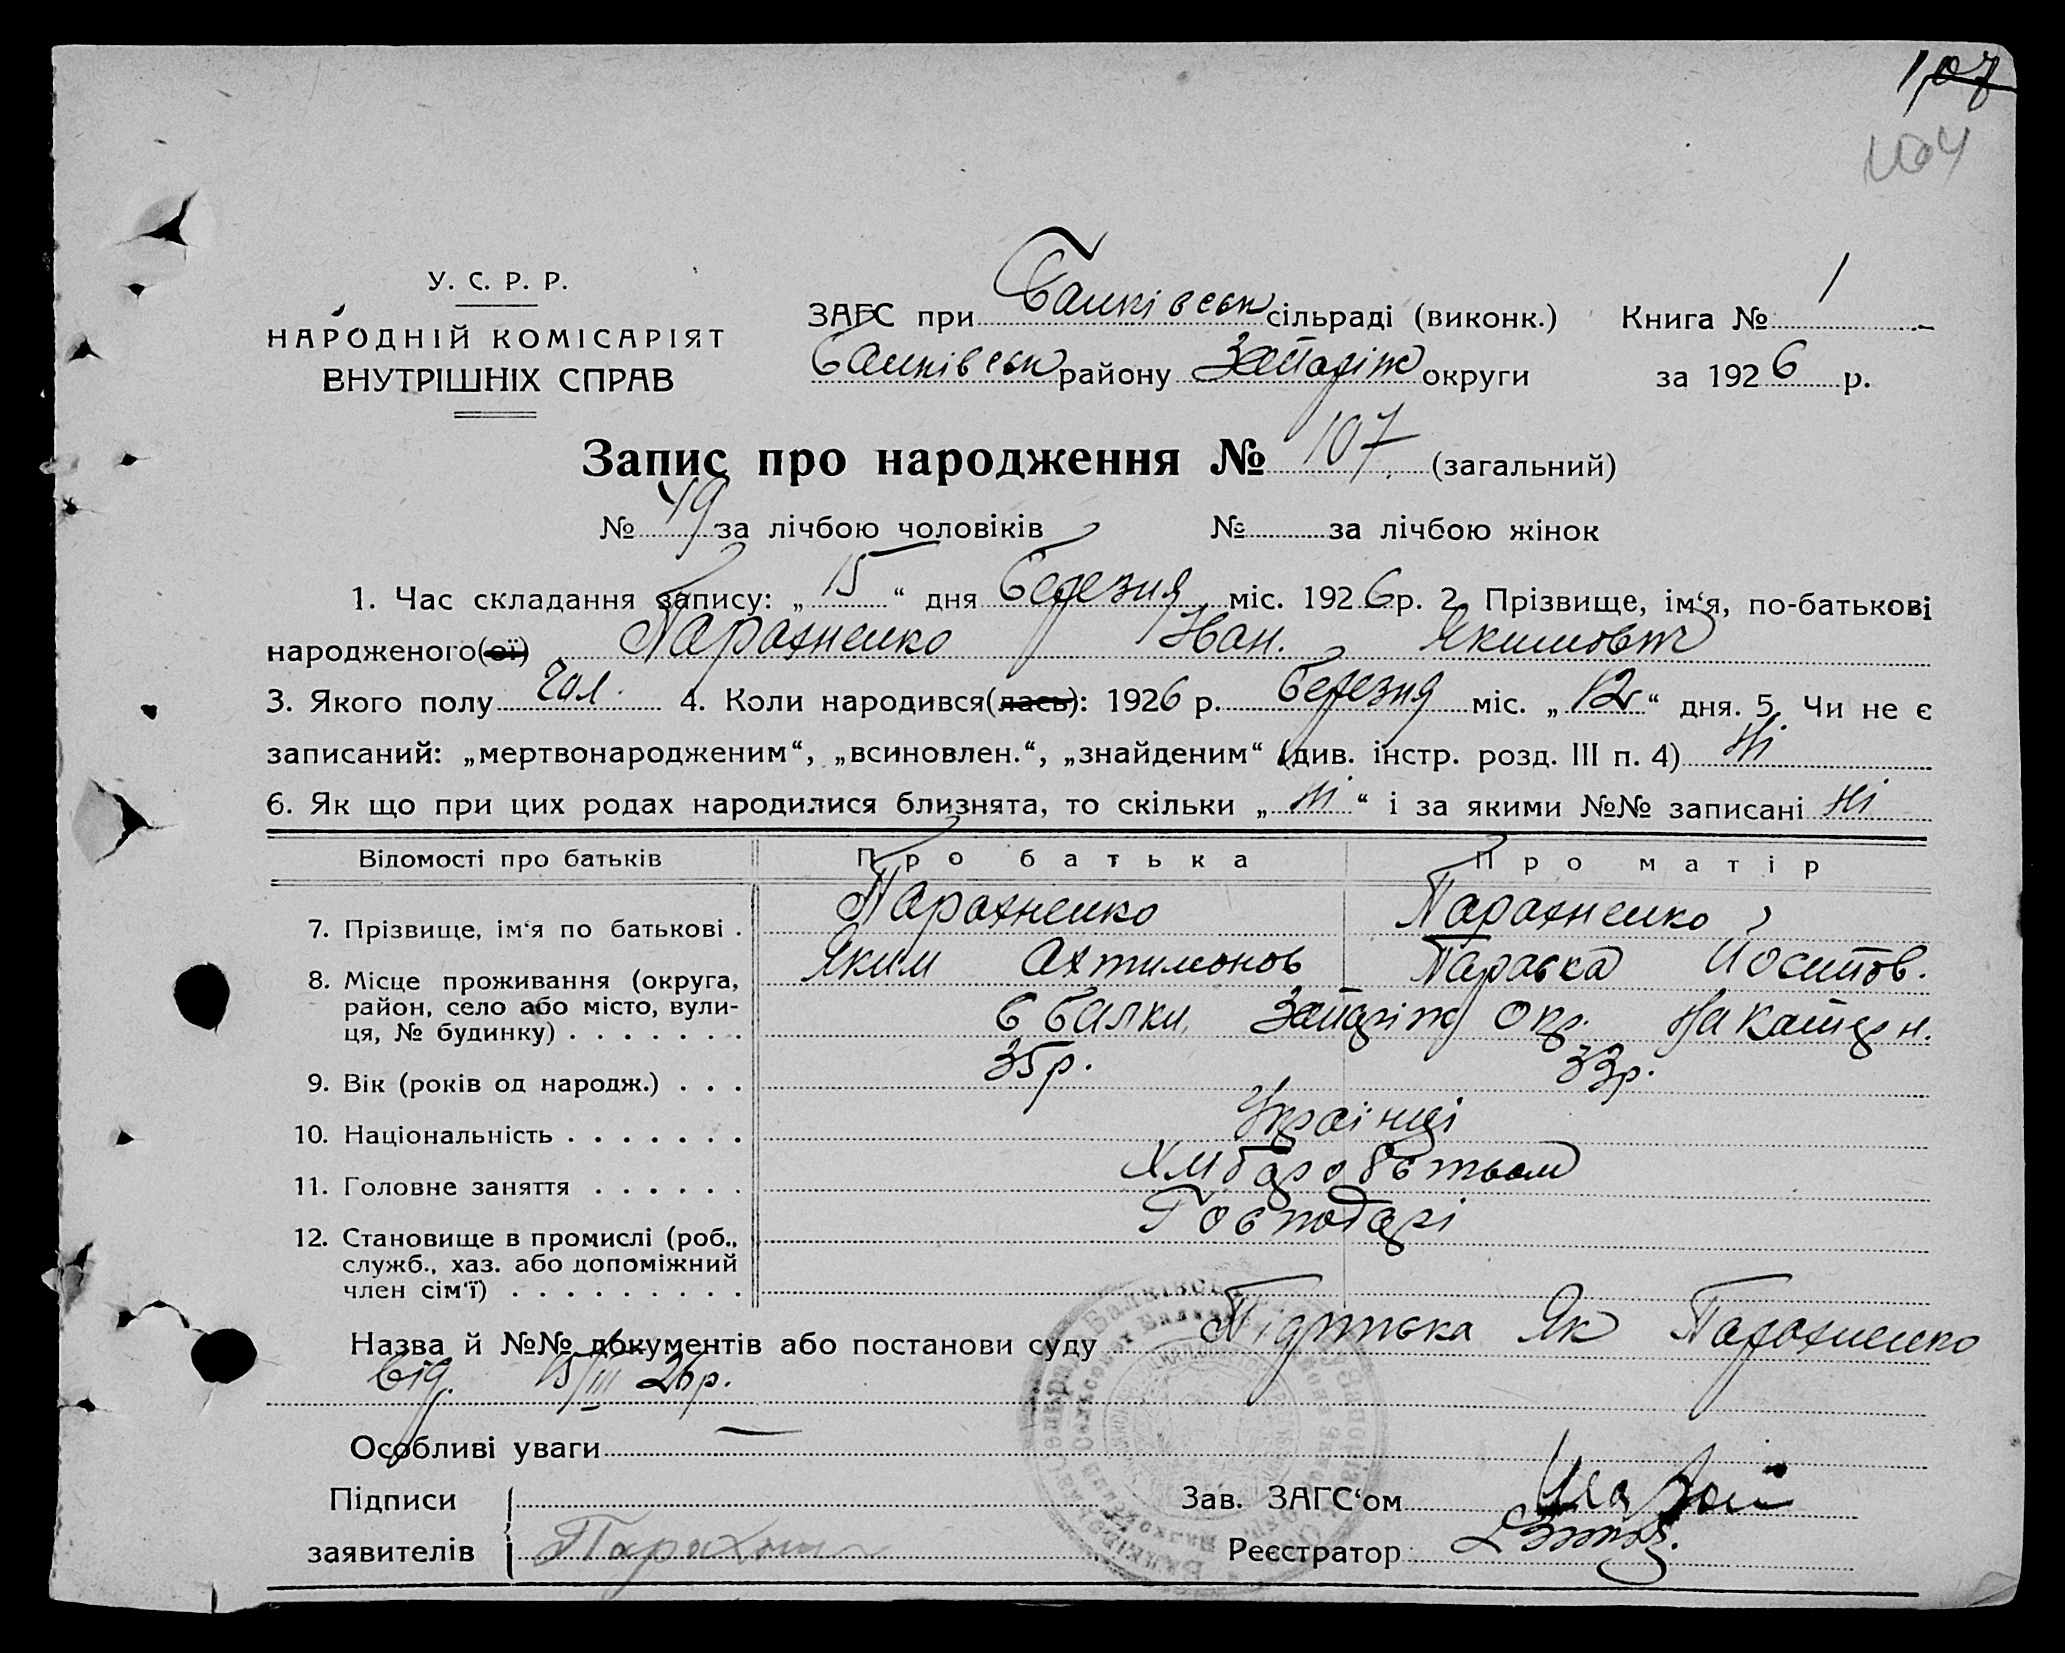 107
104
У. С. Р. Р.
НАРОДНІЙ КОМІСАРІЯТ
ВНУТРІШНІХ СПРАВ
ЗАГС при Балківськ сільраді (виконк.) Книга № 1
Балківськ району Запоріж округи за 1926 р.
Запис про народження № 107 (загальний)
№ 49 за лічбою чоловіків № за лічбою жінок
1. Час складання запису: „15“ дня березня міс. 1926 р. 2. Прізвище, ім‘я, по-батькові
народженого(ої) Парахненко Іван. Якимович
3. Якого полу Чол. 4. Коли народився(лась): 1926 р. березня міс. „12“ дня. 5. Чи не є
записаний: „мертвонародженим“, „всиновлен.“, „знайденим“ (див. інстр. розд. III п. 4) Ні
6. Як що при цих родах народилися близнята, то скільки „Ні“ і за якими №№ записані Ні
Відомості про батьків Про батька Про матір
7. Прізвище, ім‘я по батькові . Парахненко Парахненко
Яким Ахтимонов Параска Йосипов.
8. Місце проживання (округа, район, село або місто, вулиця, № будинку) . . . . . . . с балки, Запоріж окр.
9. Вік (років од народж.) . . . 35р. 33р.
10. Національність . . . . . . . Українці
11. Головне заняття . . . . . . Хліборобством
12. Становище в промислі (роб., служб., хаз. або допоміжний член сім‘ї) . . . . . . . . . Господарі
Назва й №№ документів або постанови суду Підписка Як Парахненко
від 15/III 26р.
Особливі уваги —
Підписи Зав. ЗАГС‘ом
заявителів Реєстратор